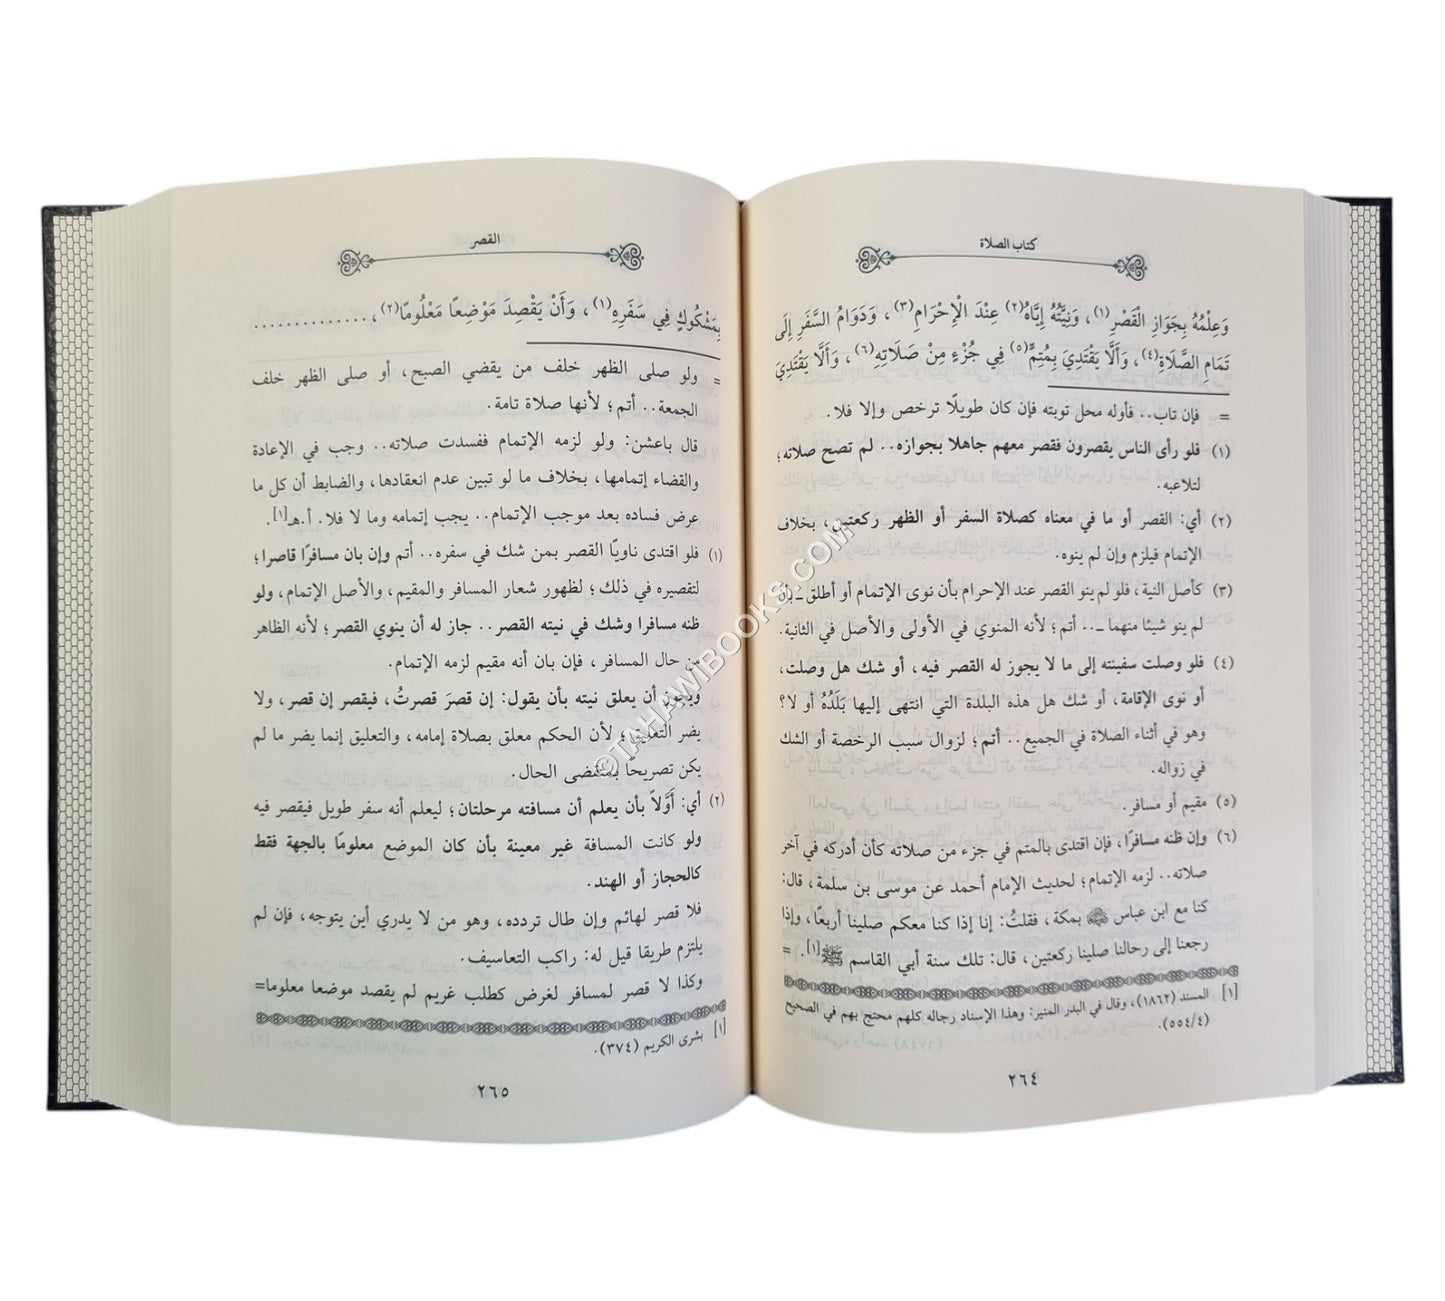 كتاب الصلاة
وَعِلْمُهُ بِجَوَازِ الْقَصْرِ(١)، وَنِيَّتُهُ إِيَّاهُ(٢) عِنْدَ الْإِحْرَامِ(٣)، وَدَوَامُ السَّفَرِ إِلَى
تَمَامِ الصَّلَاةِ(٤)، وَأَلَّا يَقْتَدِيَ بِمُتِمٍّ(٥) فِي جُزْءٍ مِنْ صَلَاتِهِ(٦)، وَأَلَّا يَقْتَدِيَ
= فإن تاب.. فأوله محل توبته فإن كان طويلًا ترخص وإلا فلا.
(١) فلو رأى الناس يقصرون فقصر معهم جاهلا بجوازه.. لم تصح صلاته؛
لتلاعبه.
(٢) أي: القصر أو ما في معناه كصلاة السفر أو الظهر ركعتين، بخلاف
الإتمام فيلزم وإن لم ينوه.
(٣) كأصل النية، فلو لم ينو القصر عند الإحرام بأن نوى الإتمام أو أطلق ـ بأن
لم ينو شيئا منهما ـ.. أتم؛ لأنه المنوي في الأولى والأصل في الثانية.
(٤) فلو وصلت سفينته إلى ما لا يجوز له القصر فيه، أو شك هل وصلت،
أو نوى الإقامة، أو شك هل هذه البلدة التي انتهى إليها بَلَدُهُ أو لا؟
وهو في أثناء الصلاة في الجميع.. أتم؛ لزوال سبب الرخصة أو الشك
في زواله.
(٥) مقيم أو مسافر.
(٦) وإن ظنه مسافرًا، فإن اقتدى بالمتم في جزء من صلاته كأن أدركه في آخر
صلاته.. لزمه الإتمام؛ لحديث الإمام أحمد عن موسى بن سلمة، قال:
كنا مع ابن عباس بمكة، فقلتُ: إنا إذا كنا معكم صلينا أربعًا، وإذا
رجعنا إلى رحالنا صلينا ركعتين، قال: تلك سنة أبي القاسم ﷺ[١]. =
[١] المسند (١٨٦٢)، وقال في البدر المنير: وهذا الإسناد رجاله كلهم محتج بهم في الصحيح
(٥٥٤/٤).
٢٦٤
القصر
بِمَشْكُوكٍ فِي سَفَرِهِ(١)، وَأَنْ يَقْصِدَ مَوْضِعًا مَعْلُومًا(٢)، ..............
= ولو صلى الظهر خلف من يقضي الصبح، أو صلى الظهر خلف
الجمعة.. أتم؛ لأنها صلاة تامة.
قال باعشن: ولو لزمه الإتمام ففسدت صلاته.. وجب في الإعادة
والقضاء إتمامها، بخلاف ما لو تبين عدم انعقادها، والضابط أن كل ما
عرض فساده بعد موجب الإتمام.. يجب إتمامه وما لا فلا. أ.هـ[١].
(١) فلو اقتدى ناويًا القصر بمن شك في سفره.. أتم وإن بان مسافرًا قاصرا؛
لتقصيره في ذلك؛ لظهور شعار المسافر والمقيم، والأصل الإتمام، ولو
ظنه مسافرا وشك في نيته القصر.. جاز له أن ينوي القصر؛ لأنه الظاهر
من حال المسافر، فإن بان أنه مقيم لزمه الإتمام.
ويجوز أن يعلق نيته بأن يقول: إن قصرَ قصرتُ، فيقصر إن قصر، ولا
يضر التعليق؛ لأن الحكم معلق بصلاة إمامه، والتعليق إنما يضر ما لم
يكن تصريحًا بمقتضى الحال.
(٢) أي: أوَّلاً بأن يعلم أن مسافته مرحلتان؛ ليعلم أنه سفر طويل فيقصر فيه
ولو كانت المسافة غير معينة بأن كان الموضع معلومًا بالجهة فقط
كالحجاز أو الهند.
فلا قصر لهائم وإن طال تردده، وهو من لا يدري أين يتوجه، فإن لم
يلتزم طريقا قيل له: راكب التعاسيف.
وكذا لا قصر لمسافر لغرض كطلب غريم لم يقصد موضعا معلوما=
[١] بشرى الكريم (٣٧٤).
٢٦٥
©TAHAWIBOOKS.COM